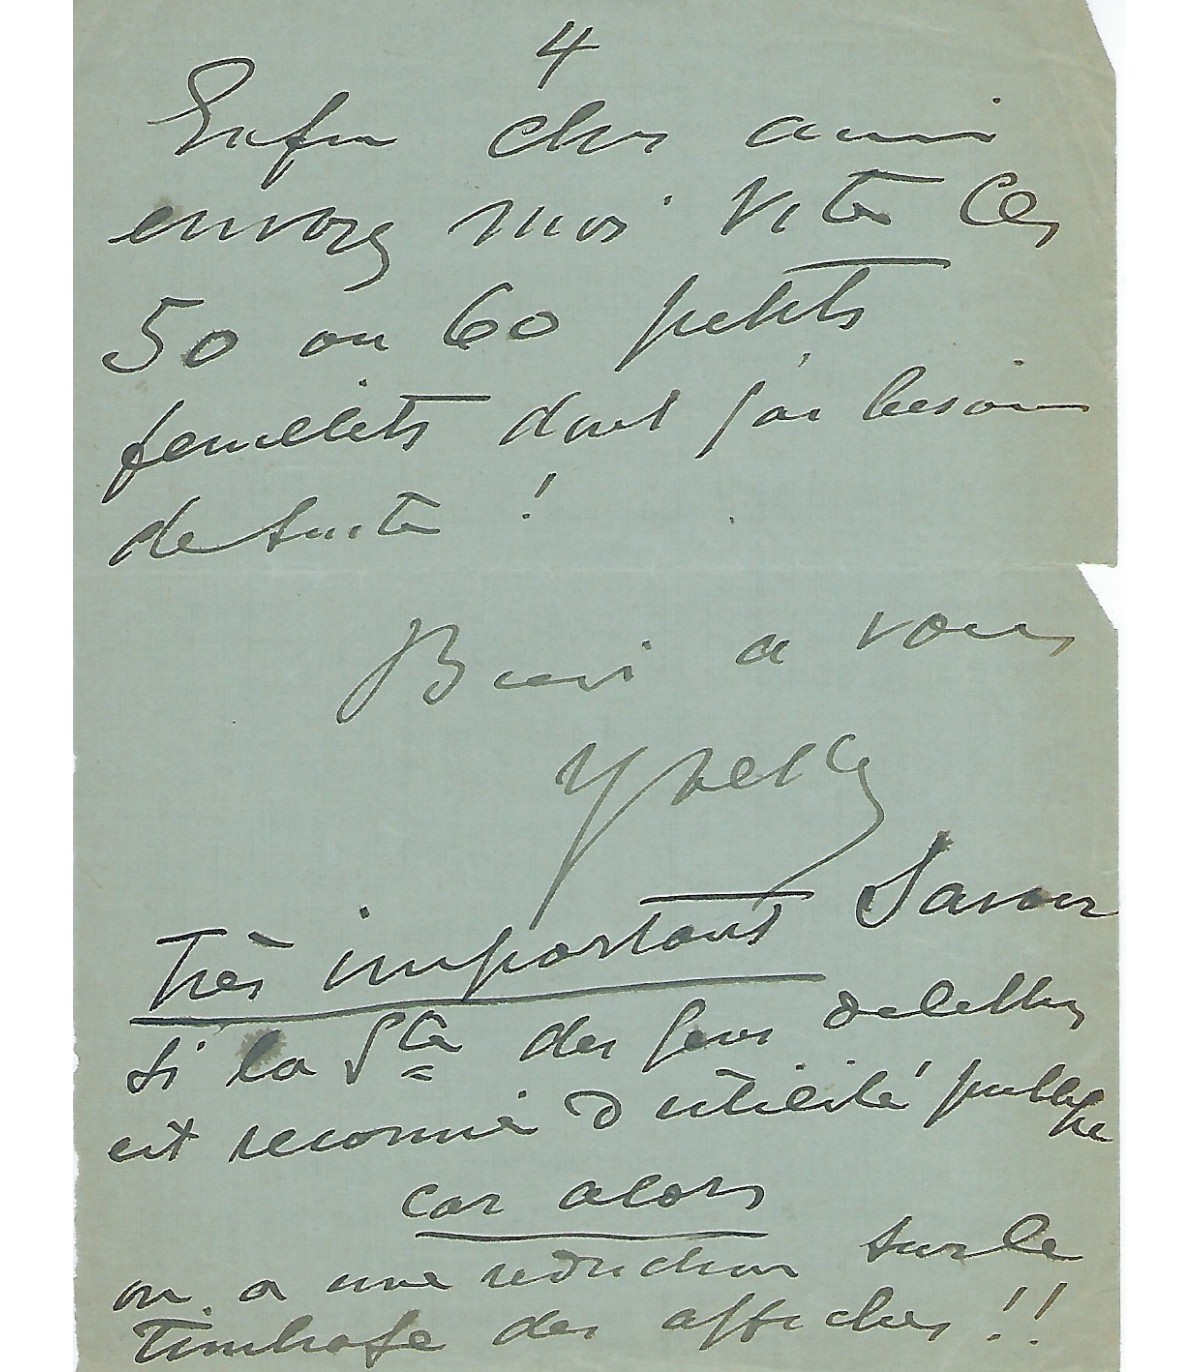 4
Enfin cher ami
envoyez moi vite les
50 ou 60 petits
feuillets dont j'ai besoin
de suite !
Bien a vous
Yvette
Très important Savoir
si la Sté des gens de lettres
est reconnue d'utilité publique
car alors
on a une réduction sur le
Timbrage des affiches !!